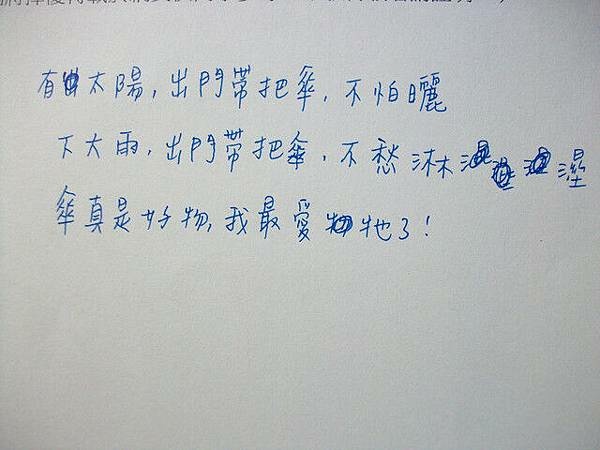 有太陽，出門帶把傘，不怕曬
下大雨，出門帶把傘，不愁淋溼
傘真是好物，我最愛牠了！